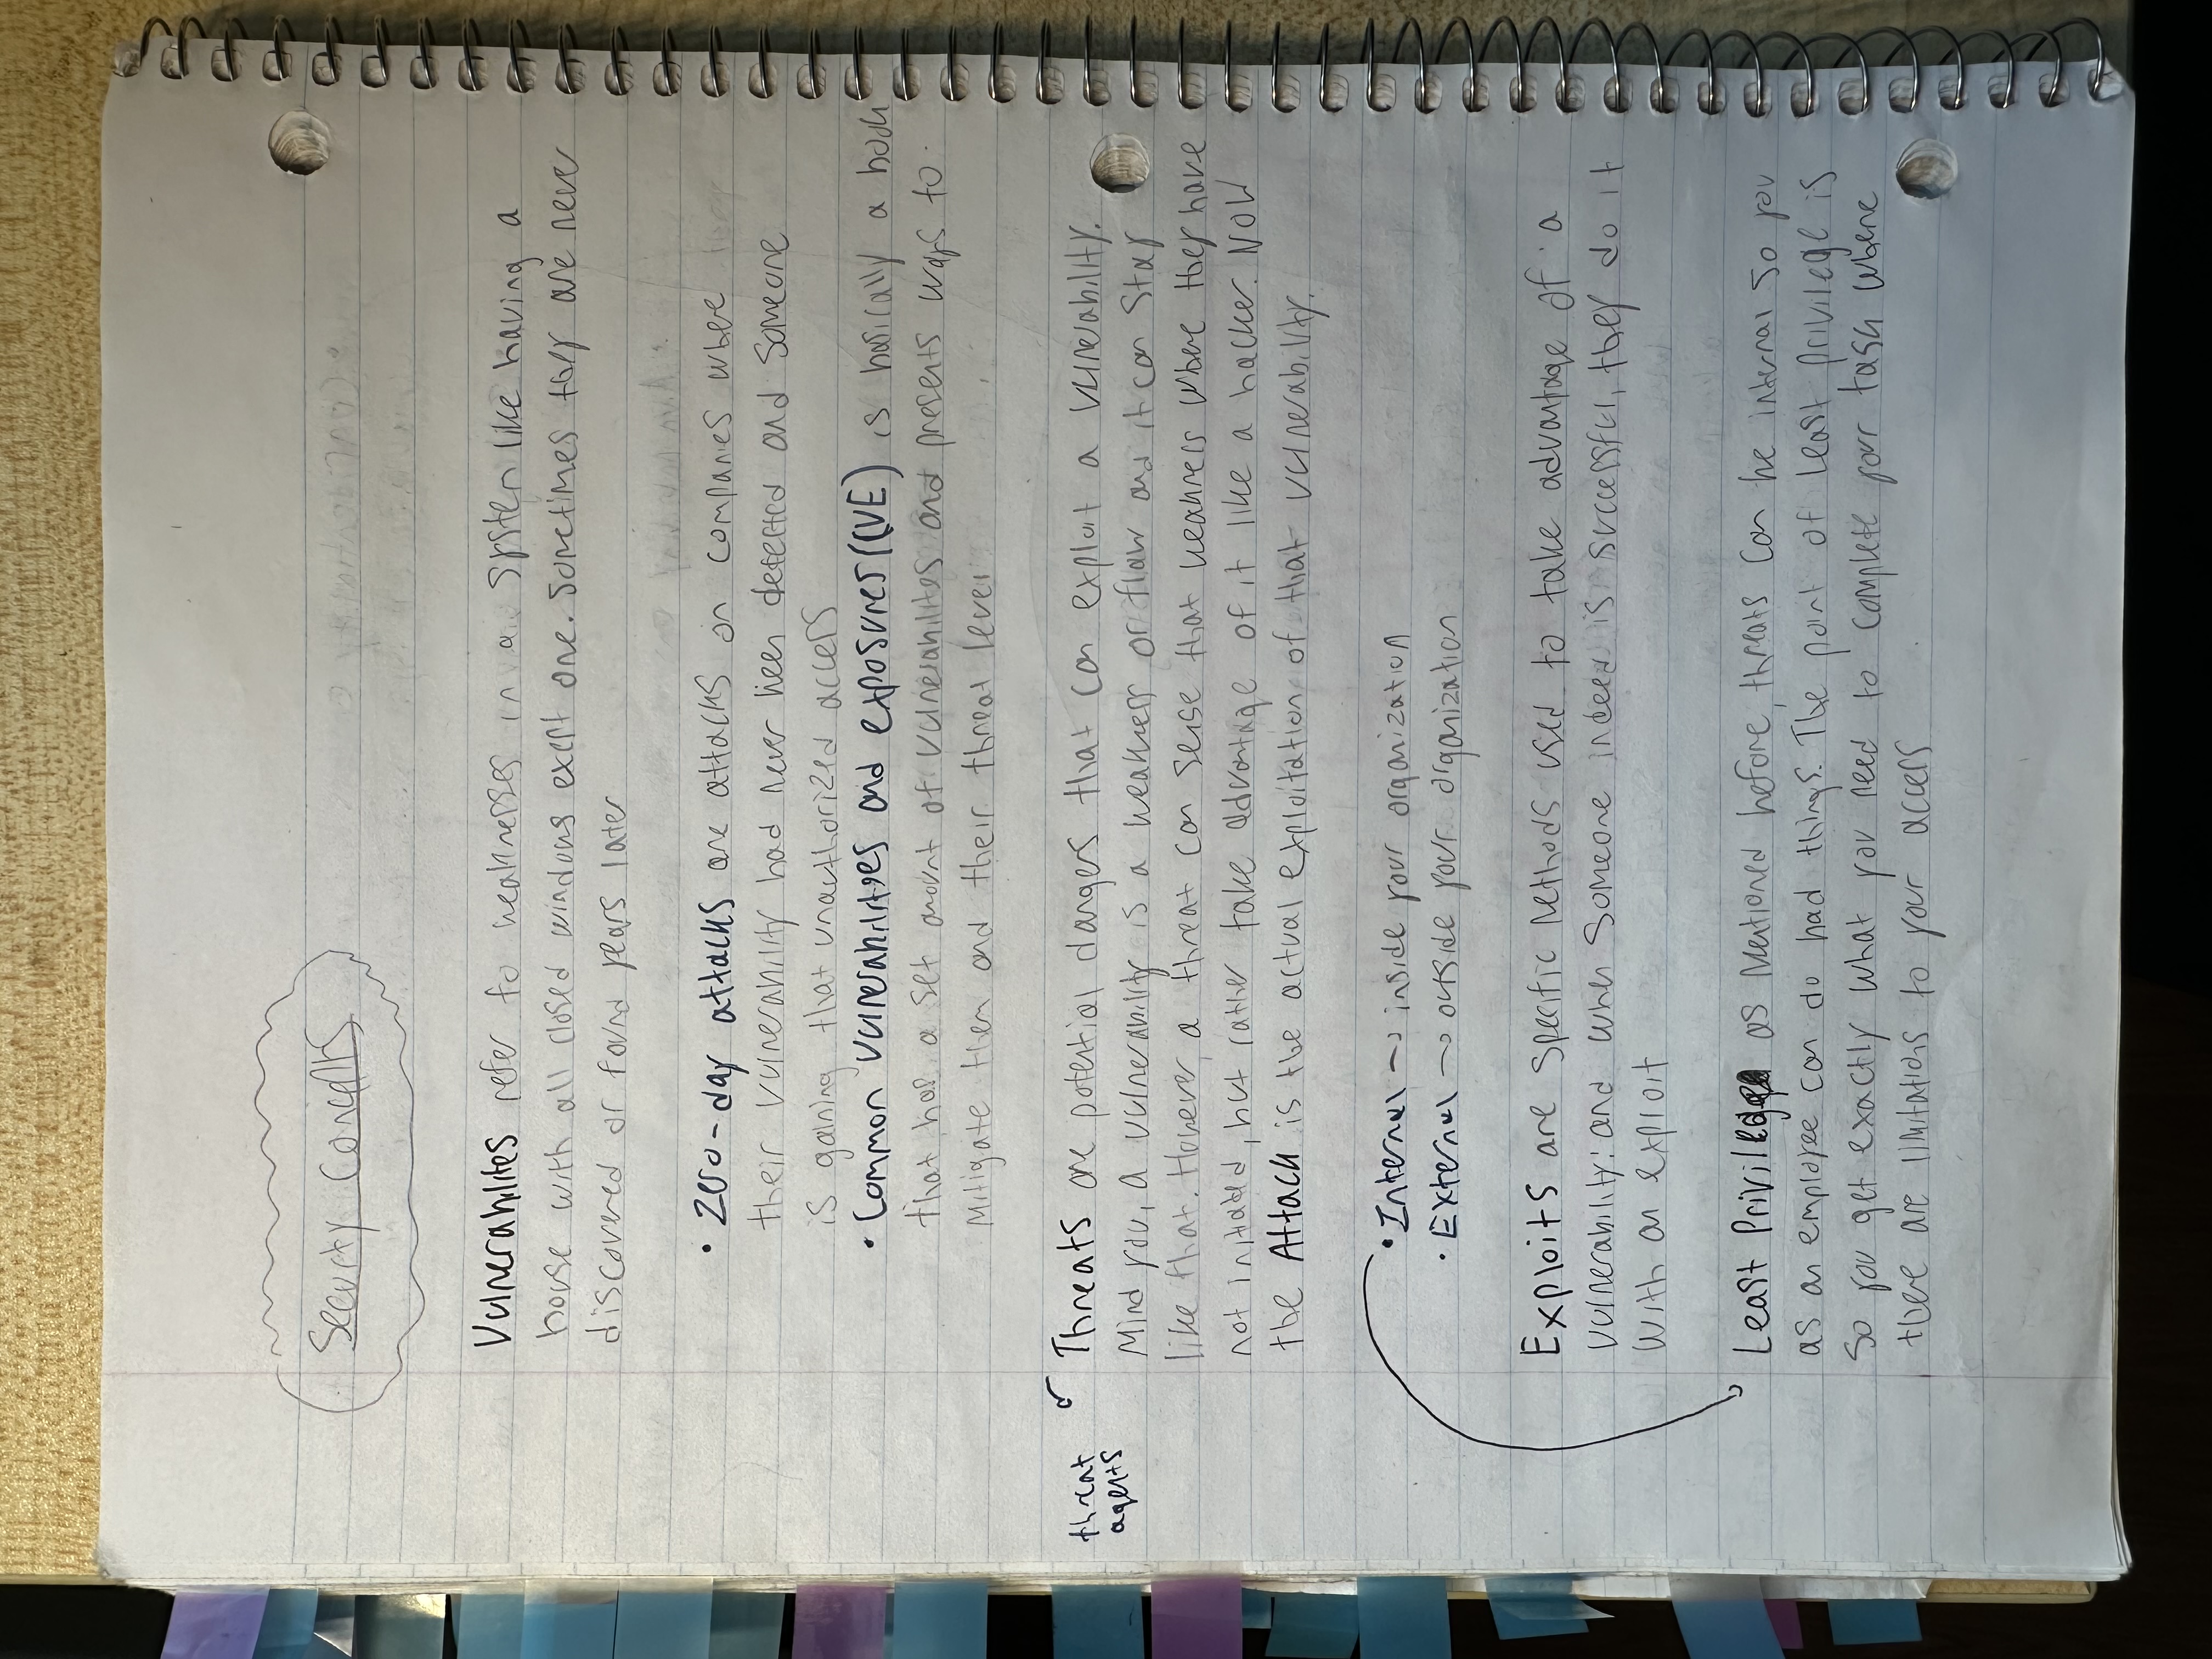 Security Concepts
Vulnerabilites refer to weaknesses in a system like having a
house with all closed windows exept one. Sometimes they are never
discovered or found years later
• Zero-day attacks are attacks on companies where
their vulnerability had never been detected and someone
is gaining that unauthorized access
• Common vulnerabilities and exposures (CVE) is basically a book
that has a set amount of vulnerabilites and presents ways to
mitigate them and their threat level
threat
agents
Threats are potential dangers that can exploit a vulnerability.
Mind you, a vulnerability is a weakness or flaw and it can stay
like that. However, a threat can sense that weakness where they have
not initiated, but rather take advantage of it like a hacker. Now
the Attack is the actual exploitation of that vulnerability.
• Internal → inside your organization
• External → outside your organization
Exploits are specific methods used to take advantage of a
vulnerability: and when someone indeed is successful, they do it
with an exploit
Least Privilege as mentioned before, threats can be internal so you
as an employee can do bad things. The point of least privilege is
so you get exactly what you need to complete your task where
there are limitations to your access